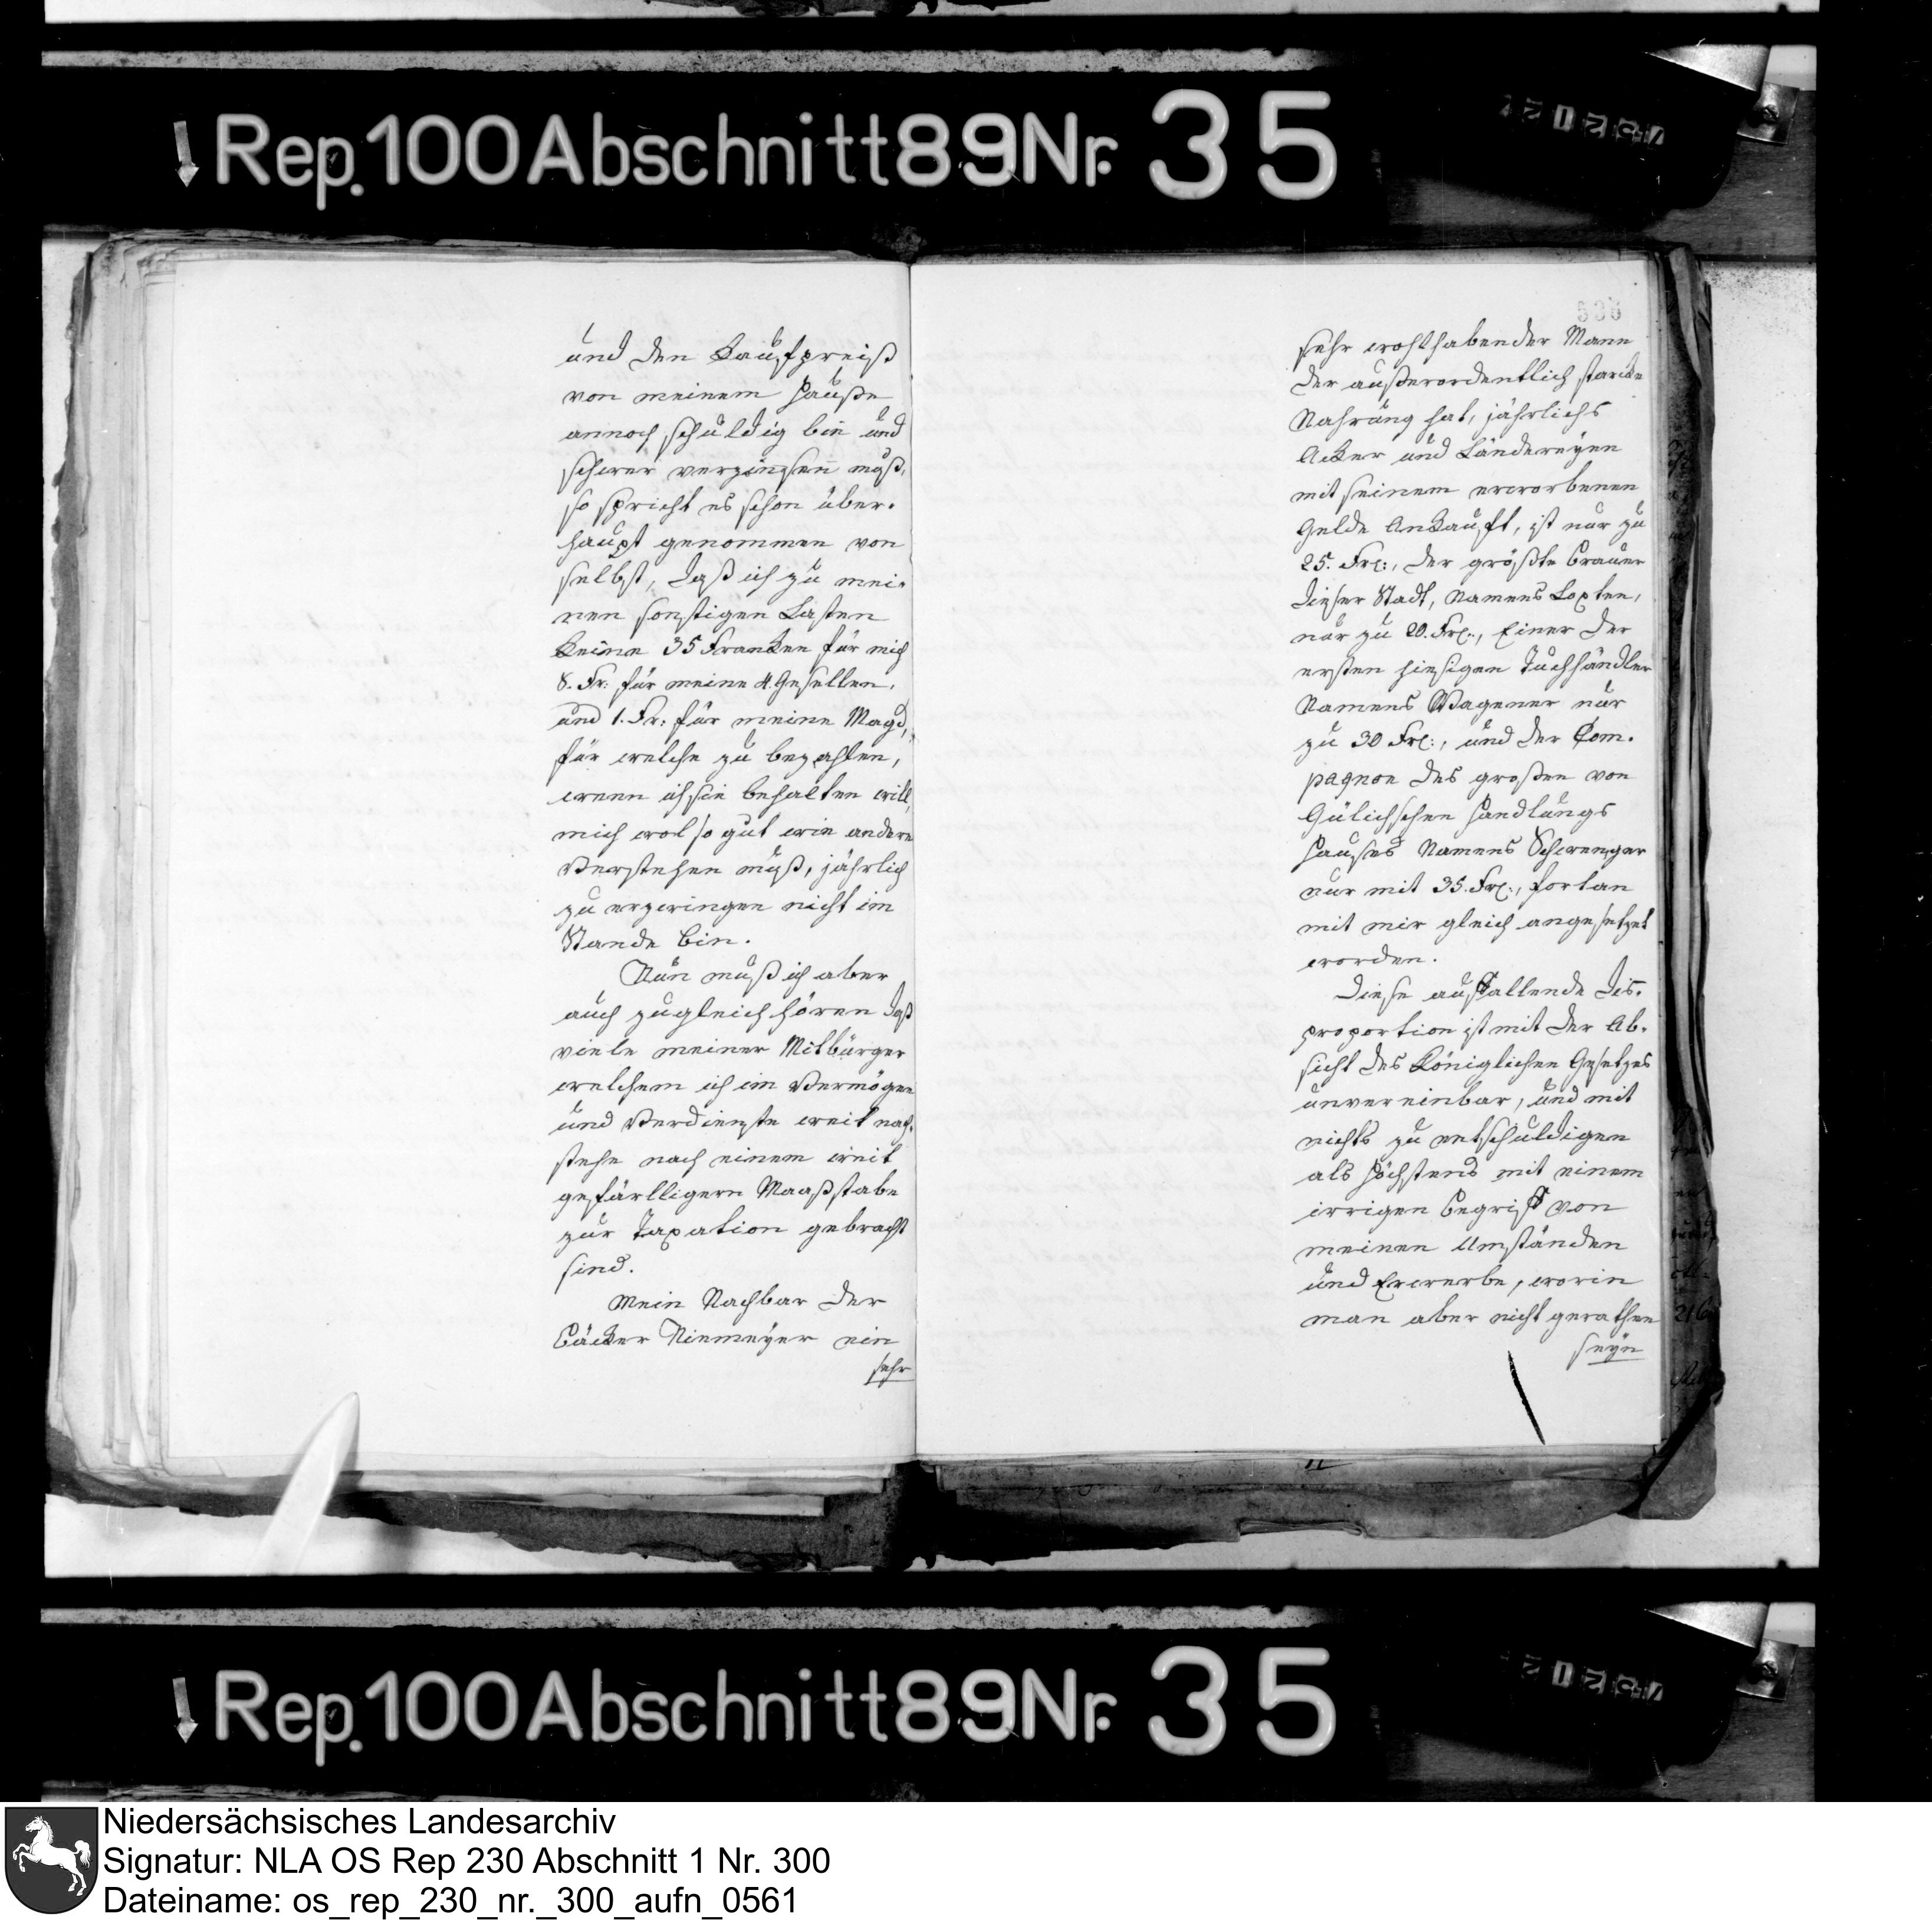 Rep. 100 Abschnitt 89 Nr. 35
und den Kaufpreiß
von meinem Hauße
annoch schuldig bin und
schwer verzinsen muß,
so spricht es schon über-
haupt genommen von
selbst, daß ich zu mei-
nen sonstigen Lasten
keine 35 Franken für mich
8. Fr: für meine 4 Gesellen,
und 1. Fr: für meine Magd,
für welche zu bezahlen,
wenn ich sie behalten will,
mich wol so gut wie andere
Verstehen muß, jährlich
zu erzwingen nicht im
Stande bin.
Nun muß ich aber
auch zugleich hören daß
viele meiner Mitbürger
welchem ich im Vermögen
und Verdienste weit nach-
stehe nach einem weit
gefälligern Maaßstabe
zur Taxation gebracht
sind.
Mein Nachbar der
Bäcker Niemeyer ein
sehr
sehr wohlhabender Mann
der außerordentlich starcke
Nahrung hat, jährlichs
Acker und Ländereyen
mit seinem erworbenen
Gelde Ankauft, ist nur zu
25. Frc:, der größte Brauer
dieser Stadt, Namens Lopten,
nur zu 20. Frc:, Einer der
ersten hiesigen Tuchhändler
Namens Wagener nur
zu 30 Frc:, und der Com-
pagnon des großen von
Gülichschen Handlungs
Hauses Namens Schwenger
nur mit 35. Frc:, fortan
mit mir gleich angesetzet
worden.
Diese auffallende dis-
proportion ist mit der Ab-
sicht des Königlichen Gesetzes
unvereinbar, und mit
nichts zu entschuldigen
als höchstens mit einem
irrigen Begriff von
meinen Umständen
und Erwerbe, worin
man aber nicht gerathen
seyn
Rep. 100 Abschnitt 89 Nr. 35
Niedersächsisches Landesarchiv
Signatur: NLA OS Rep 230 Abschnitt 1 Nr. 300
Dateiname: os_rep_230_nr._300_aufn_0561